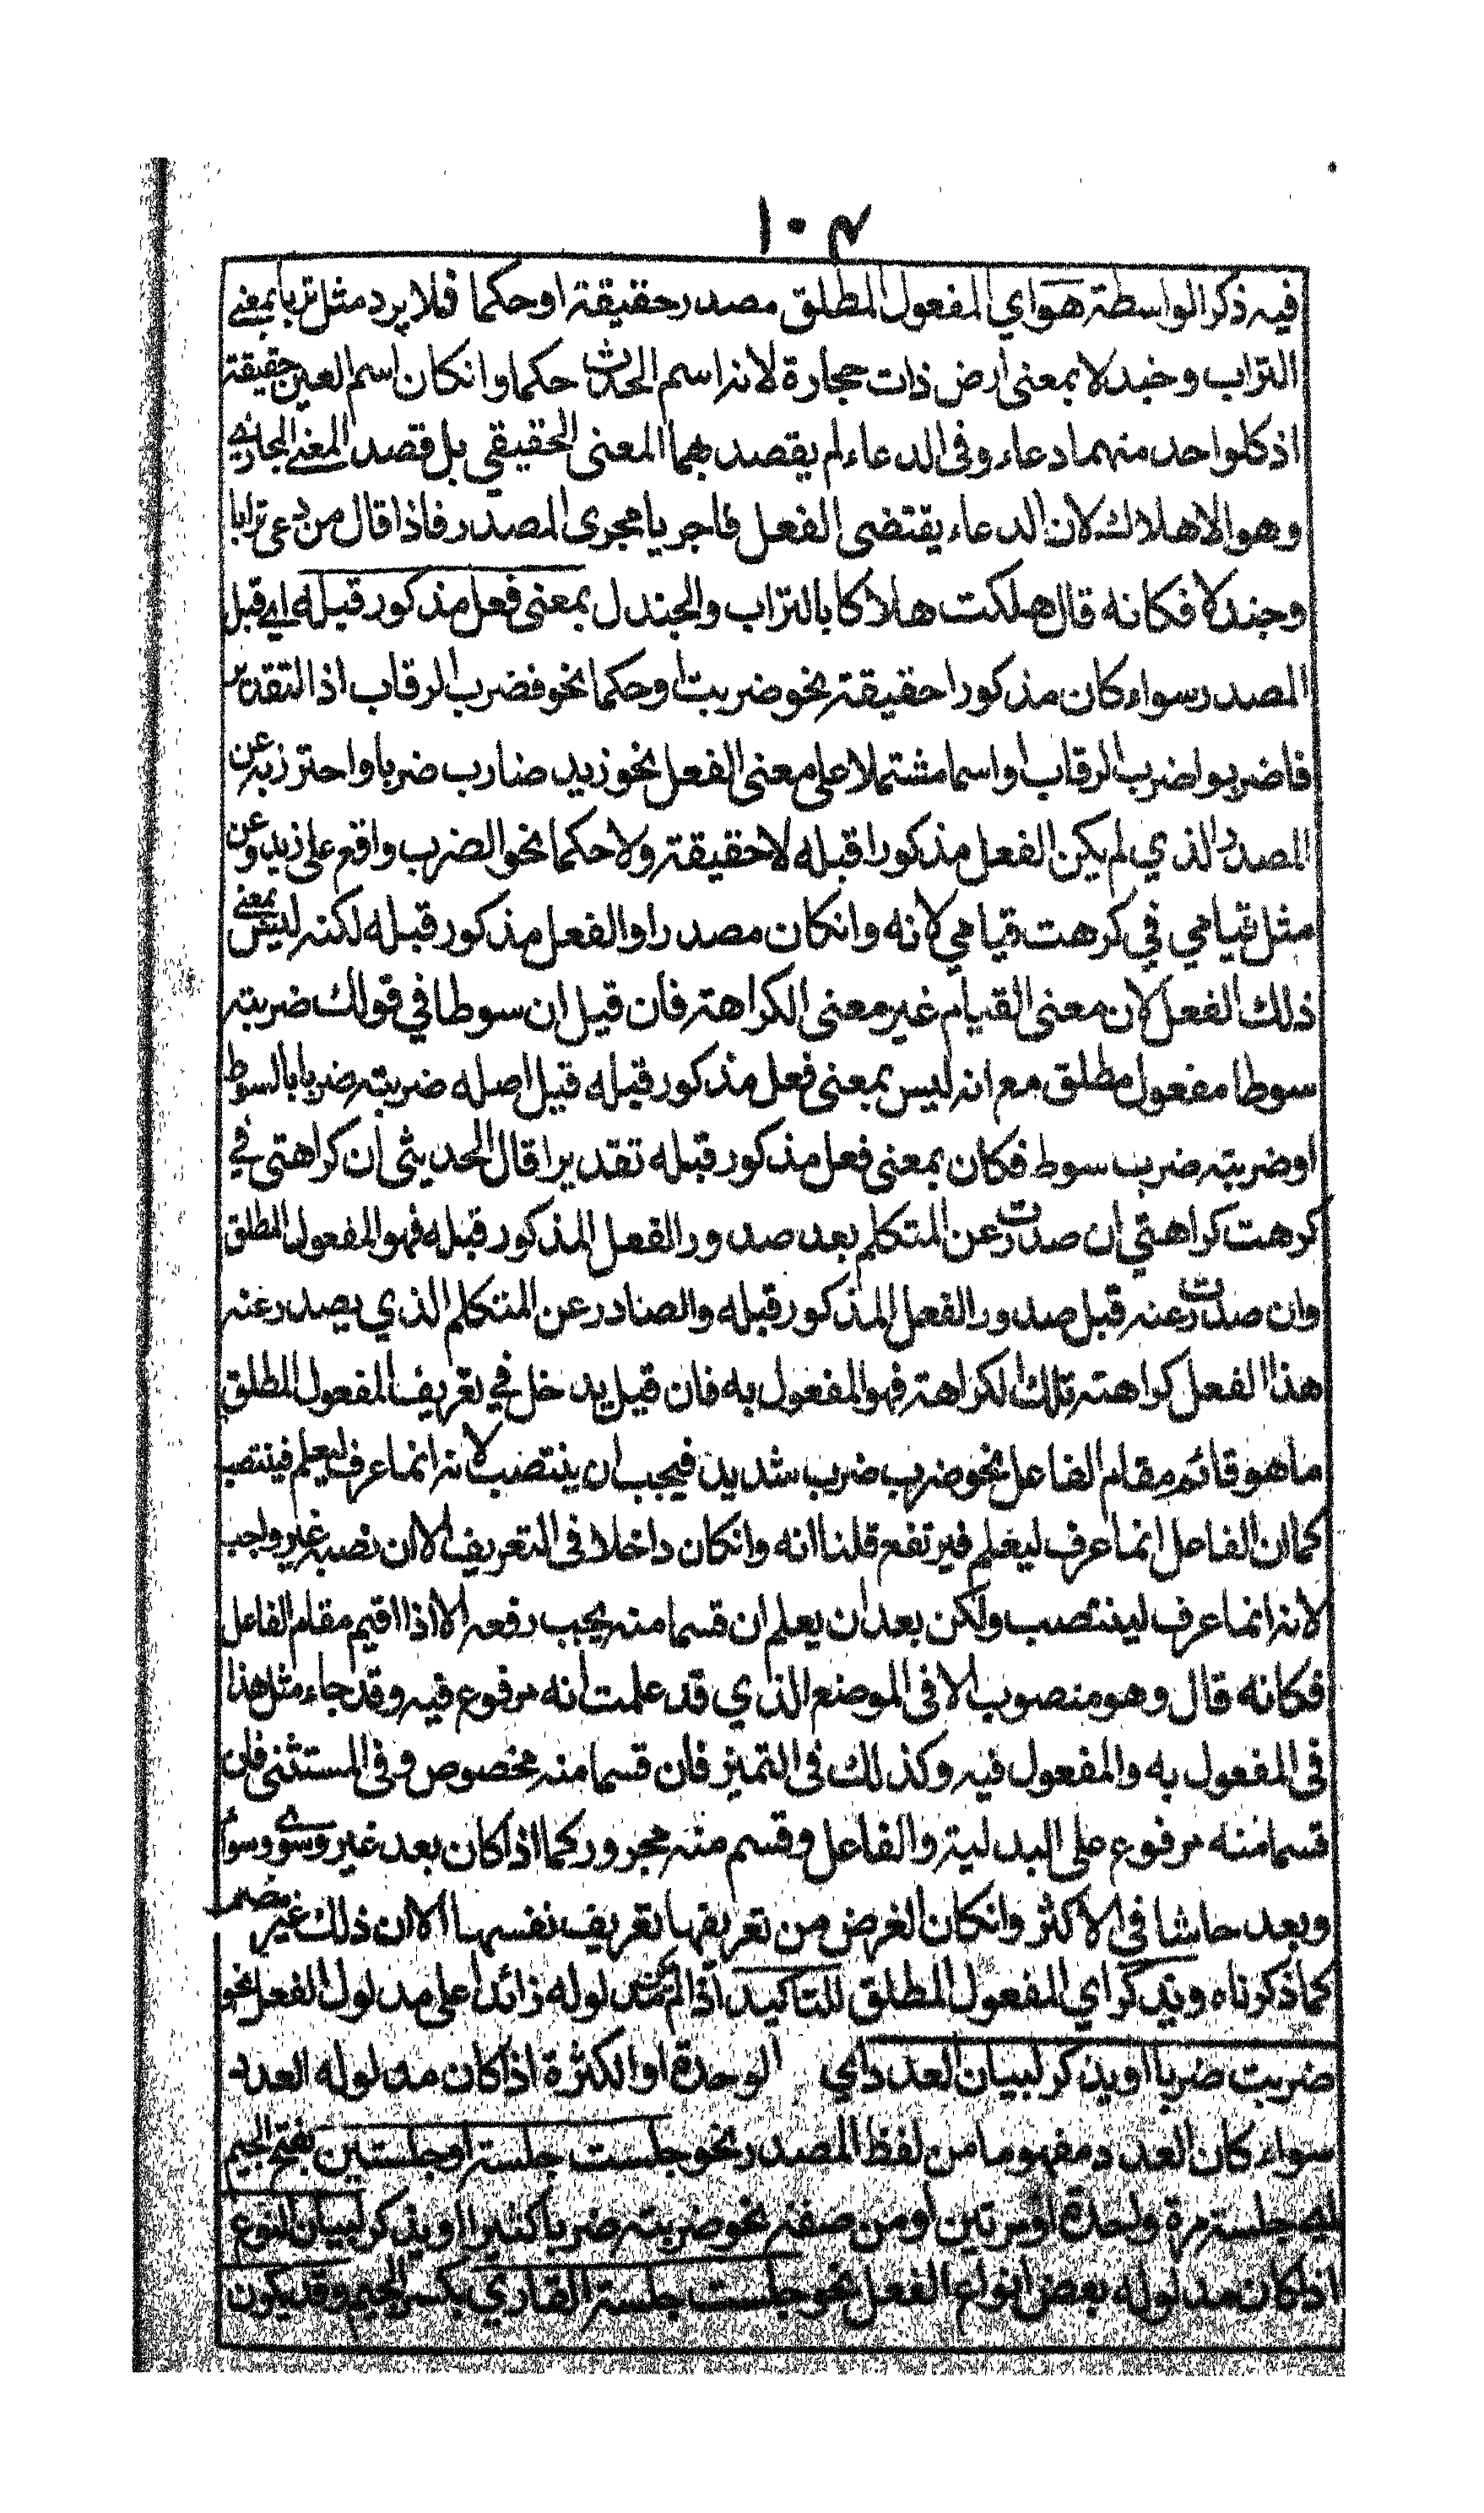 ١٠٤
فيه ذكر الواسطة هو اي المفعول المطلق مصدر حقيقة او حكما فلا يرد مثل تربا بمعنى
التراب وجندلا بمعنى ارض ذات حجارة لانه اسم الحدث حكما وانكان اسم العين حقيقة
اذ كلواحد منهما دعاء وفى الدعاء لم يقصد بهما المعنى الحقيقي بل قصد المعنى المجازي
وهو الاهلاك لان الدعاء يقتضى الفعل فاجريا مجرى المصدر فاذا قال من دعى ترابا
وجندلا فكانه قال هلكت هلاكا بالتراب والجندل بمعنى فعل مذكور قبله اي قبل
المصدر سواء كان مذكورا حقيقة نحو ضربت او حكما نحو فضرب الرقاب اذ التقدير
فاضربوا ضرب الرقاب او اسما مشتملا على معنى الفعل نحو زيد ضارب ضربا واحترز به عن
المصدر الذي لم يكن الفعل مذكورا قبله لا حقيقة ولا حكما نحو الضرب واقع على زيد وعن
مثل قيامي في كرهت قيامي لانه وانكان مصدرا والفعل مذكور قبله لكنه ليس بمعنى
ذلك الفعل لان معنى القيام غير معنى الكراهة فان قيل ان سوطا في قولك ضربته
سوطا مفعول مطلق مع انه ليس بمعنى فعل مذكور قبله قيل اصله ضربته ضربا بالسوط
او ضربته ضرب سوط فكان بمعنى فعل مذكور قبله تقديرا قال الحديثى ان كراهتى في
كرهت كراهتي ان صدرت عن المتكلم بعد صدور الفعل المذكور قبله فهو المفعول المطلق
وان صدرت عنه قبل صدور الفعل المذكور قبله والصادر عن المتكلم الذي يصدر عنه
هذا الفعل كراهته تلك الكراهة فهو المفعول به فان قيل يدخل في تعريف المفعول المطلق
ما هو قائم مقام الفاعل نحو ضرب ضرب شديد فيجب ان ينتصب لانه انما عرف ليعلم فينتصب
كما ان الفاعل انما عرف ليعلم فيرتفع قلنا انه وانكان داخلا فى التعريف الا ان نصبه غير واجب
لانه انما عرف لينتصب ولكن بعد ان يعلم ان قسما منه يجب رفعه الا اذا اقيم مقام الفاعل
فكانه قال وهو منصوب الا فى الموضع الذي قد علمت انه مرفوع فيه وقد جاء مثل هذا
فى المفعول به والمفعول فيه وكذلك فى التميز فان قسما منه مخصوص وفى المستثنى فان
قسما منه مرفوع على البدلية والفاعل وقسم منه مجرور كما اذا كان بعد غير وسوى وسواء
وبعد حاشا في الاكثر وانكان الغرض من تعريفها تعريف نفسها الا ان ذلك غير مضر
كما ذكرناه ويذكر اي المفعول المطلق للتاكيد اذ لم يكن مدلوله زائدا على مدلول الفعل نحو
ضربت ضربا او يذكر لبيان العدد اي الوحدة او الكثرة اذا كان مدلوله العدد
سواء كان العدد مفهوما من لفظ المصدر نحو جلست جلسة او جلستين بفتح الجيم
اي جلسة مرة واحدة او مرتين او من صفة نحو ضربته ضربا كثيرا او يذكر لبيان النوع
اذا كان مدلوله بعض انواع الفعل نحو جلست جلسة القاري بكسر الجيم وقد يكون